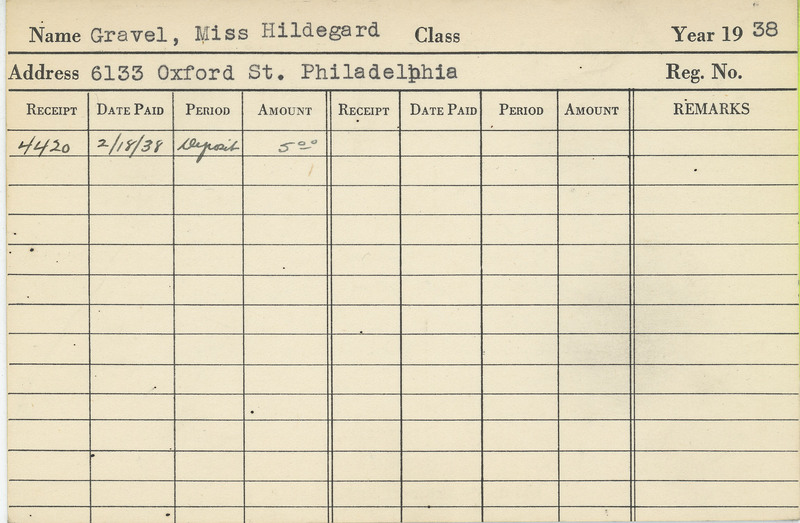 Name Gravel, Miss Hildegard Class Year 19 38
Address 6133 Oxford St. Philadelphia Reg. No.
RECEIPT DATE PAID PERIOD AMOUNT RECEIPT DATE PAID PERIOD AMOUNT REMARKS
4420 2/18/38 Deposit 5.00